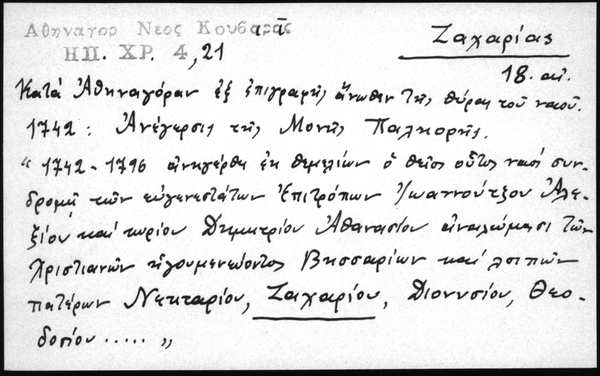 Αθηναγορ Νεος Κουβαρᾶς
ΗΠ. ΧΡ. 4, 21
Ζαχαρίας
18. αἰ.
Κατά Ἀθηναγόραν ἐξ ἐπιγραφῆς ἄνωθεν τῆς θύρας τοῦ ναοῦ.
1742: Ἀνέγερσις τῆς Μονῆς Παληορῆς.
" 1742-1796 ἀνηγέρθη ἐκ θεμελίων ὁ θεῖος οὗτος ναός συν-
δρομῇ τῶν εὐγενεστάτων Ἐπιτρόπων Ἰωαννούτζου Ἀλε-
ξίου καί κυρίου Δημητρίου Ἀθανασίου ἀναλώμασι τῶν
Χριστιανῶν ἡγουμενεύοντος Βησσαρίων καί λοιπῶν
πατέρων Νεκταρίου, Ζαχαρίου, Διονυσίου, Θεο-
δοσίου..... "